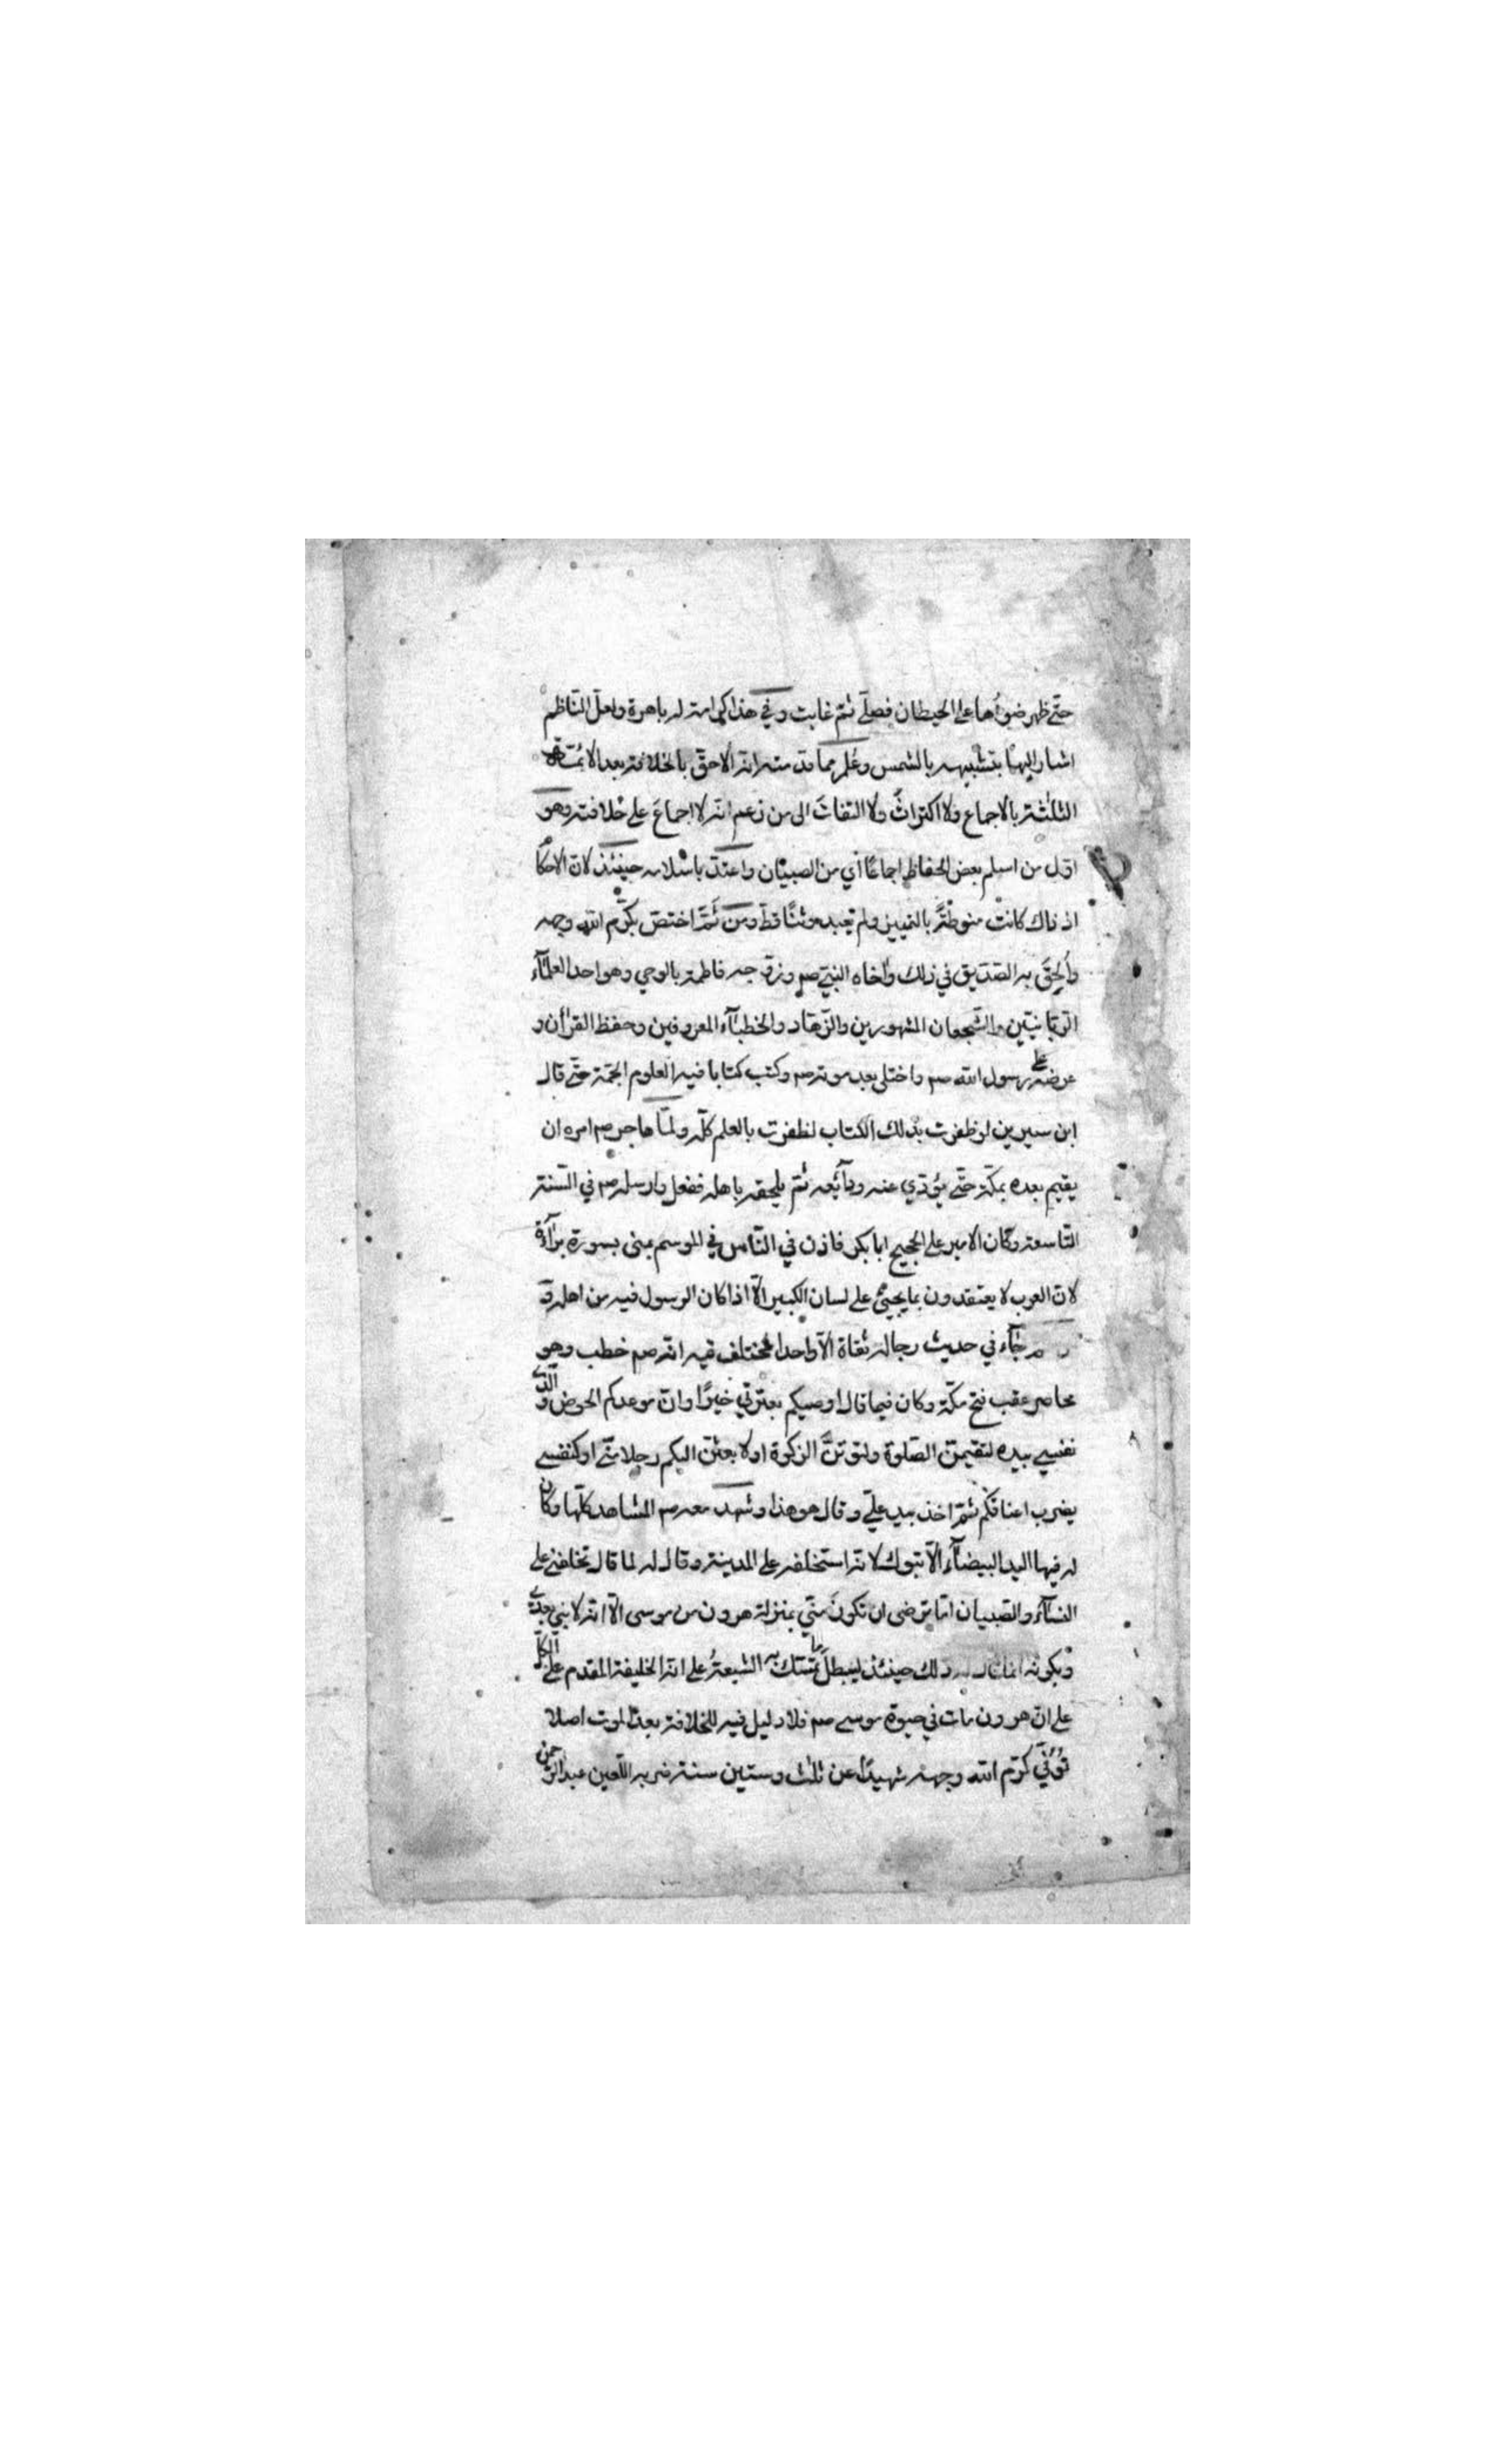 حتّى ظهر ضوءها على الحيطان فصلّى ثمّ غابت وفي هذا كرامة له باهرة ولعلّ النّاظم
اشار اليها بتشبيهه بالشمس وعُلم مما قدمته انه الاحقّ بالخلافة بعد الائمّة
الثلٰثة بالاجماع ولا اكتراثَ ولا التفاتَ الى من زعم انه لا اجماعَ على خلافته وهو
اوّل من اسلم بعض الحفاظ اجماعًا أي من الصبيان واعتدّ باسلامه حينئذ لانّ الاحكا
اذ ذاك كانت منوطةً بالتمييز ولم يعبد وثنًا قطّ ومن ثَمَّ اختصّ بكرّم الله وجهه
وأُلحِقَ به الصّدّيق في ذلك واٰخاه النبيّ صم وزوّجه فاطمة بالوحي وهو احد العلماۤء
الرّبانيّين والشّجعان المشهورين والزّهاد والخطباۤء المعروفين وحفظ القراٰن و
عرضه على رسول الله صم واختلى بعد موته صم وكتب كتابا فيه العلوم الجمّة حتّى قال
ابن سيرين لو ظفرت بذلك الكتاب لظفرت بالعلم كلّه ولمّا هاجر صم امره ان
يقيم بعده بمكّة حتّى يؤدّي عنه ودآئعه ثمّ يلحقه باهله ففعل وارسله صم في السّنة
التاسعة وكان الامير على الحجيج ابا بكر فاذن في النّاس في الموسم بمنى بسورة براۤءة
لانّ العرب لا يعتقدون بما يجيئ على لسان الكبير الّا اذا كان الرسول فيه من اهله وقـ
جاۤء في حديث رجاله ثقاة الّا واحدا فمختلف فيه انه صم خطب وهو
محاصر عقب فتح مكّة وكان فيما قال اوصيكم بعترتي خيرًا وانّ موعدكم الحوض والّذي
نفسي بيده لتقيمنّ الصّلوة ولتوتنَّ الزكوة اولا بعثنّ اليكم رجلا منّي اوكنفسي
يضرب اعناقكم ثمّ اخذ بيد عليّ وقال هو هذا وشهد معه صم المشاهد كلّها وكان
له فيها اليد البيضاۤء الّا تبوك لانه استخلفه على المدينة وقال له لما قال تخلفني على
النساۤء والصّبيان امّا ترضى ان تكونَ منّي بمنزلة هرون من موسى الّا انه لا نبي بعدي
وبكونه انما قال له ذلك حينئذ ليبطلَ ما تمسّك به الشيعةُ على انه الخليفة المقدم على الكلّ
على انّ هرون مات في حيوة موسى صم فلا دليل فيه للخلافة بعد الموت اصلا
تُوُفّيَ كرّم الله وجهه شهيدًا عن ثلٰث وستين سنة ضربه اللّعين عبد الرّحمن